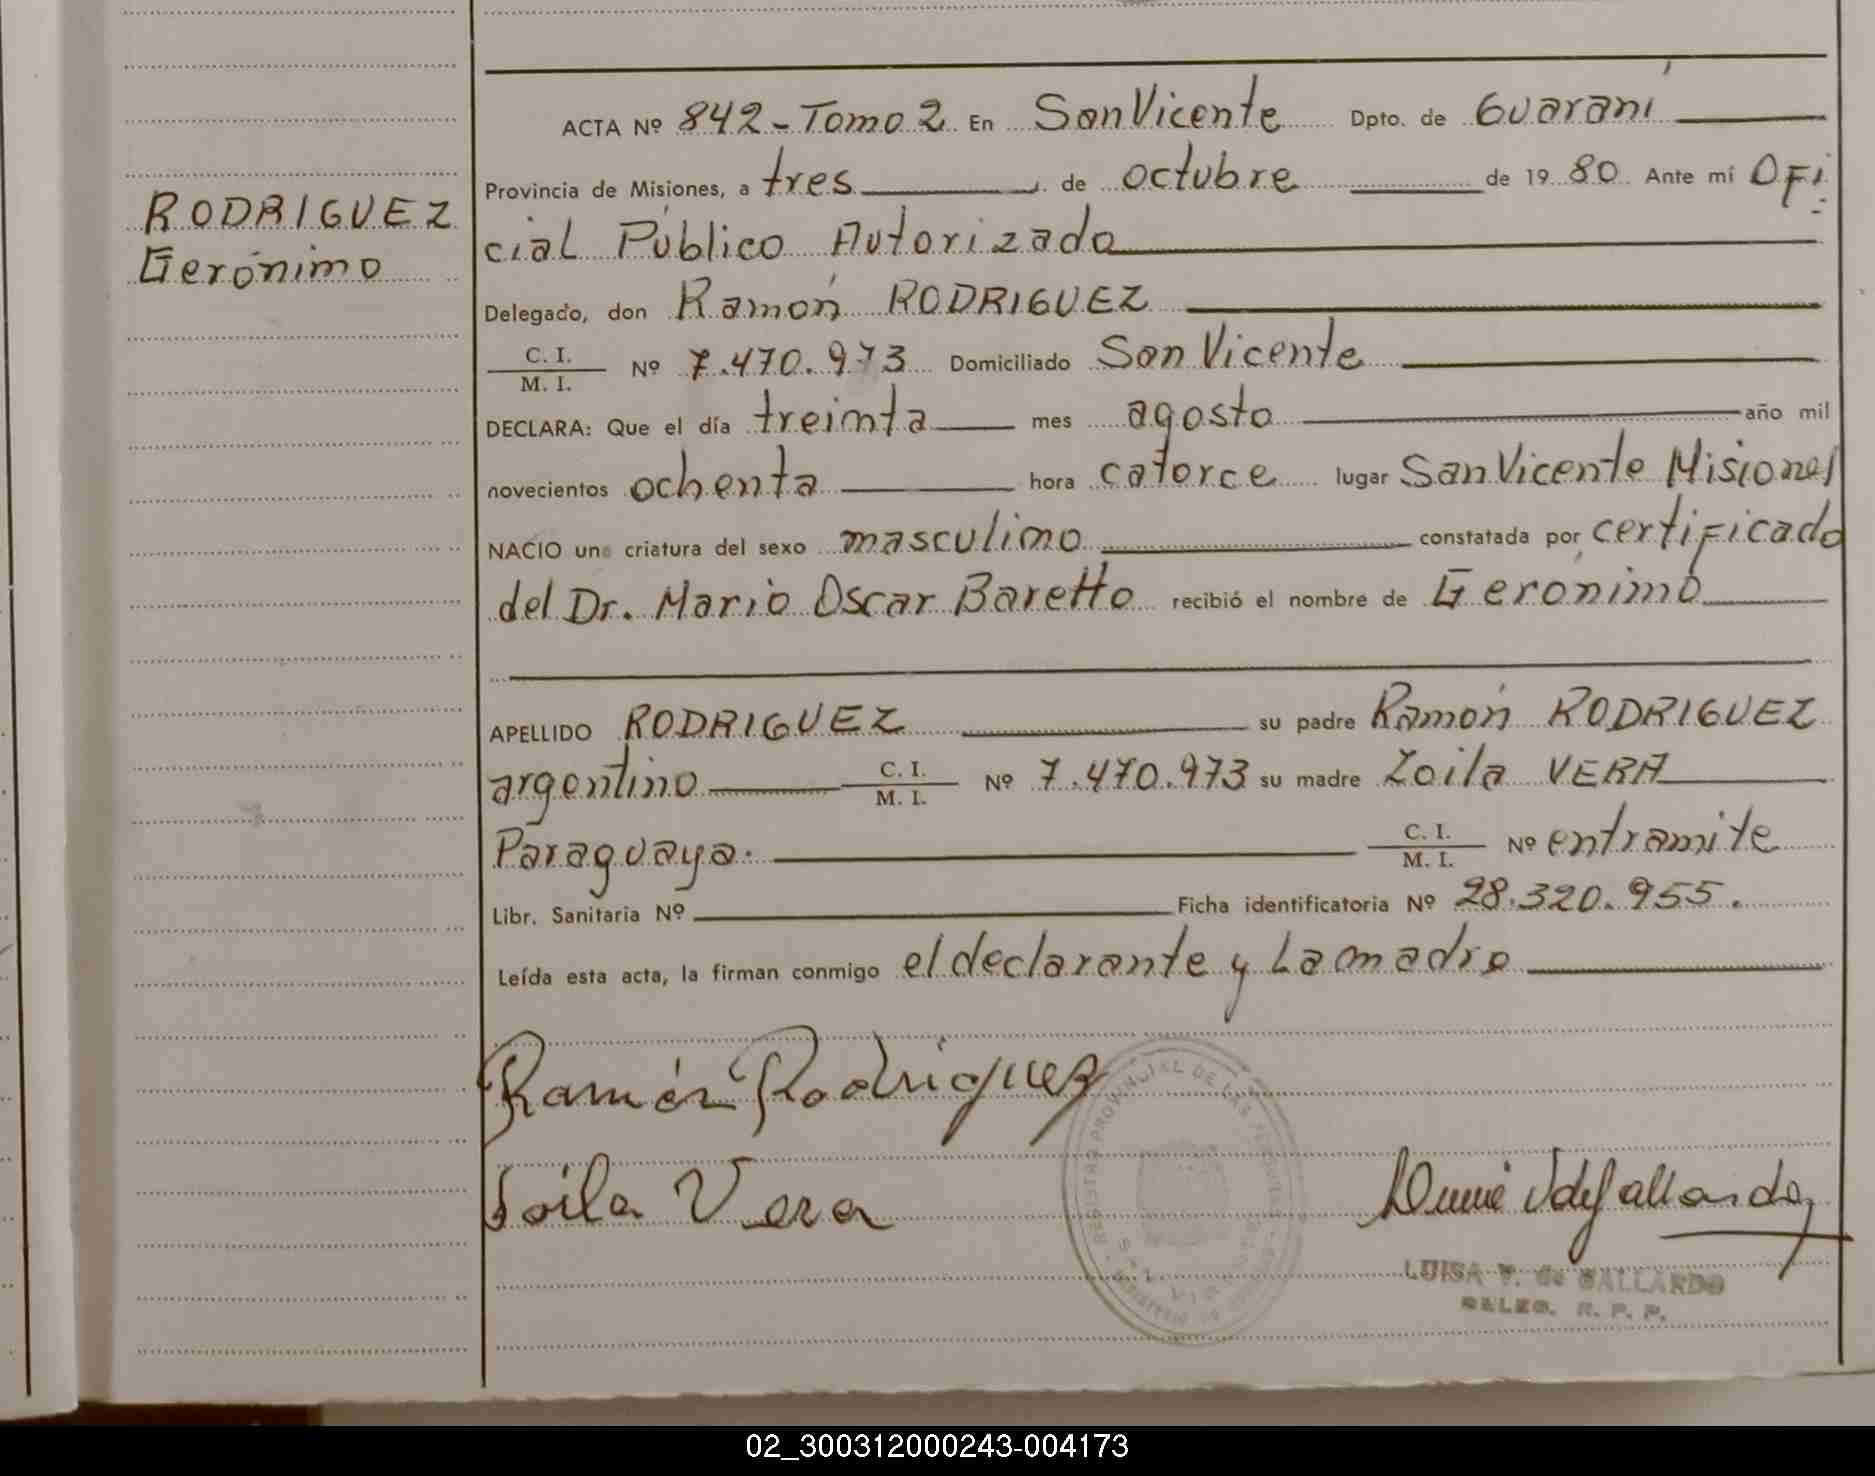 ACTA Nº 842 - Tomo 2 En San Vicente Dpto. de Guaraní
Provincia de Misiones, a tres de octubre de 1980 Ante mí Ofi
RODRIGUEZ
Gerónimo
cial Público Autorizado
Delegado, don Ramón RODRIGUEZ
C. I.
M. I. Nº 7.470.973 Domiciliado San Vicente
DECLARA: Que el día treinta mes agosto año mil
novecientos ochenta hora catorce lugar San Vicente Misiones
NACIO una criatura del sexo masculino constatada por certificado
del Dr. Mario Oscar Baretto recibió el nombre de Gerónimo
APELLIDO RODRIGUEZ su padre Ramón RODRIGUEZ
argentino C. I.
M. I. Nº 7.470.973 su madre Zoila VERA
Paraguaya. C. I.
M. I. Nº entramite
Libr. Sanitaria Nº Ficha identificatoria Nº 28.320.955.
Leída esta acta, la firman conmigo el declarante y La madre
Ramón Rodriguez
REGISTRO PROVINCIAL DE LAS PERSONAS
Soila Vera
LUISA V. de GALLARDO
DELEG. R. P. P.
02_300312000243-004173